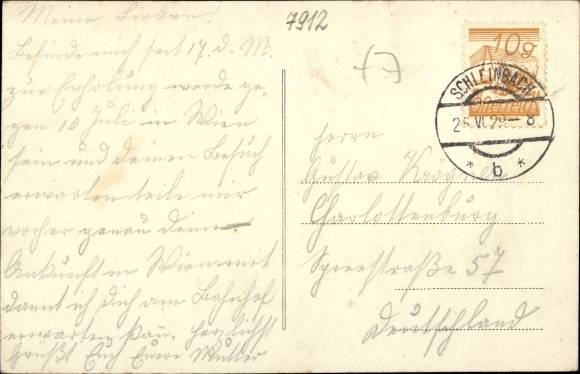 7912
Meine Lieben,
Befinde mich seit 17. d. M.
zur Erholung werde ge-
gen 10 Juli in Wien
sein und deinen Besuch
erwarten teile mir
vorher genau deine
Ankunft in Wien mit
damit ich Dich am Bahnhof
erwarten kann. Herzlichst
Grüßt Euch Euere Mutter
10g
SCHLEINBACH
25.VI.29-8
* b *
Herrn
Gustav
Charlottenburg
Spreestraße 57
Deutschland